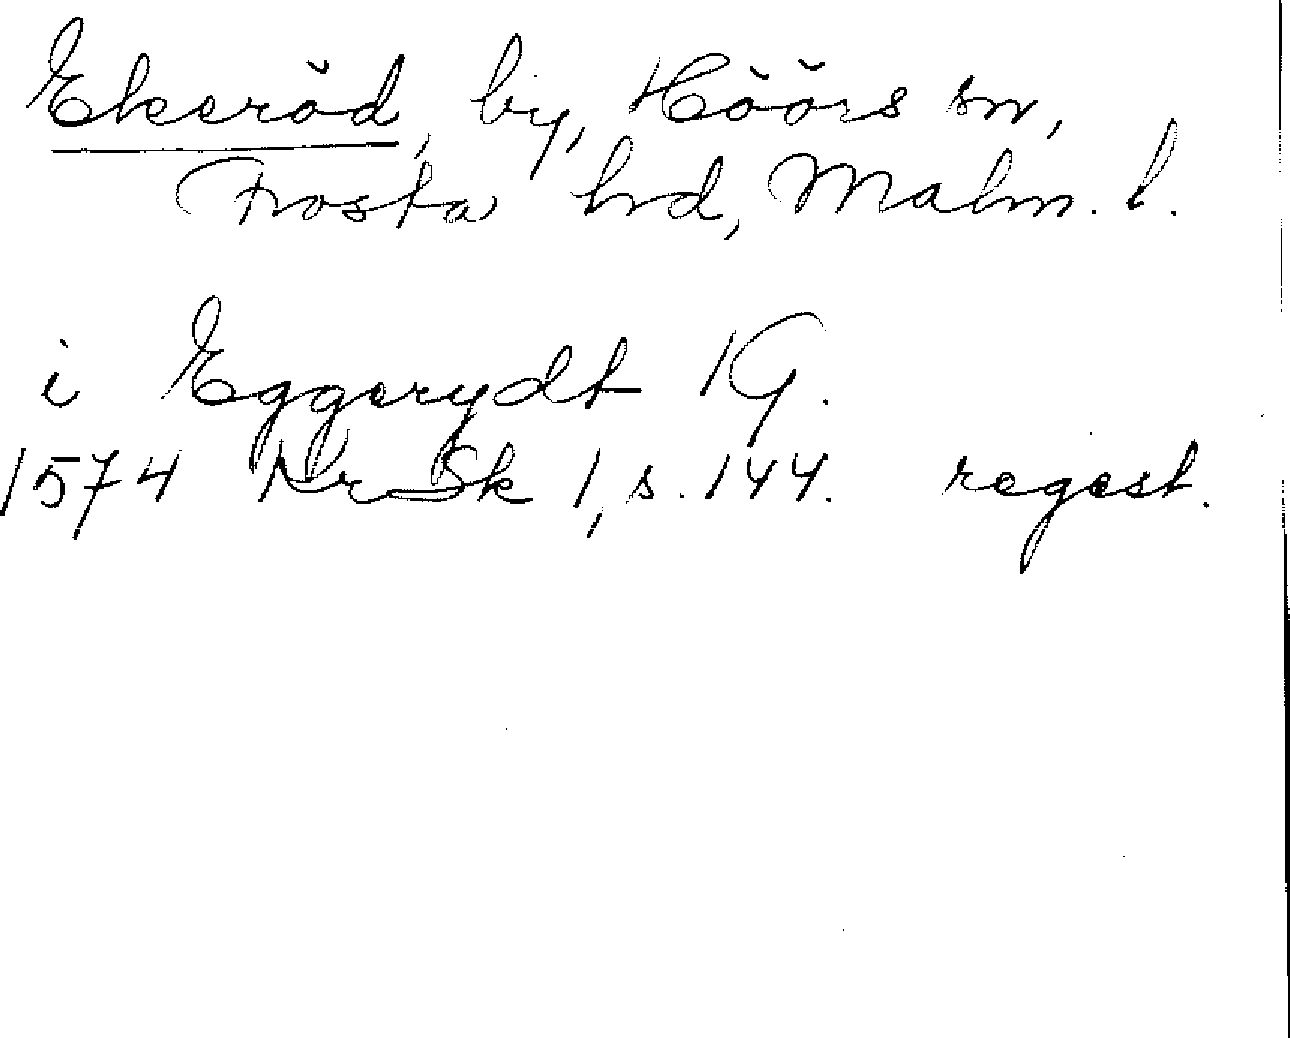 Ekeröd, by, Höörs sn,
Frosta hrd, Malm. l.
i Eggerydt KG.
1574 NrSk 1, s. 144. regest.